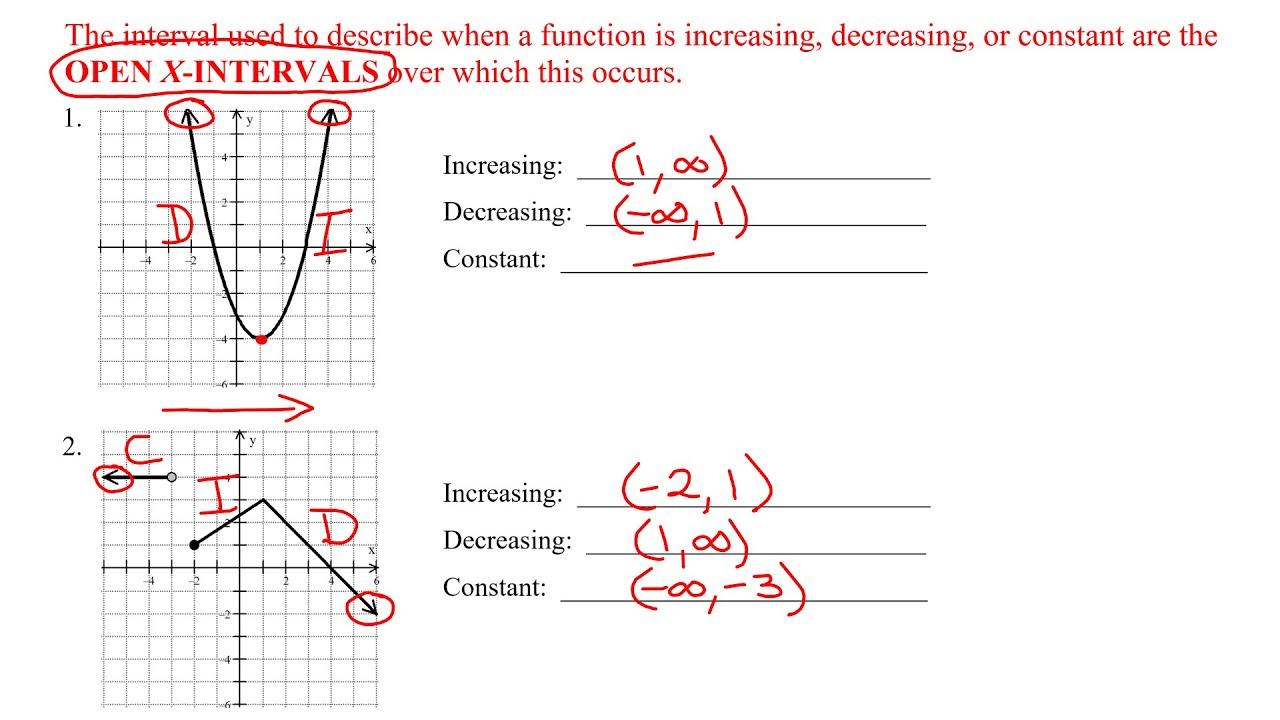 The interval used to describe when a function is increasing, decreasing, or constant are the
OPEN X-INTERVALS over which this occurs.
1.
y
4
2
D
I
x
-4 -2 4 6
-2
-4
-6
Increasing: (1, ∞)
Decreasing: (-∞, 1)
Constant: —
2.
C
y
4
I
2
D
x
-4 -2 2 4 6
-2
-4
-6
Increasing: (-2, 1)
Decreasing: (1, ∞)
Constant: (-∞, -3)